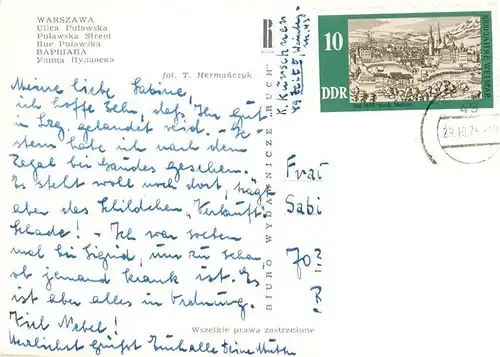 WARSZAWA
Ulica Puławska
Puławska Street
Rue Puławska
ВАРШАВА
Улица Пулавска
fot. T. Hermańczyk
Meine liebe Sabine,
ich hoffe sehr, daß Ihr gut
in Lzg. gelandet seid. - Ge-
stern habe ich nach dem
Regal bei Gaudes gesehen.
Es steht wohl noch dort, trägt
aber das Schildchen "Verkauft".
Schade! - Ich war soeben
mal bei Sigrid, um zu schau'n,
ob jemand krank ist. Es
ist aber alles in Ordnung.
Viel Nebel!
Herzlichst grüßt Euch alle Deine Mutti
Wszelkie prawa zastrzeżone
BIURO WYDAWNICZE „RUCH"
RUCH
K. Kürschner
49 Zeitz
10
DDR
1000 JAHRE WEIMAR
49
29.10.76
Frau
Sabi
70